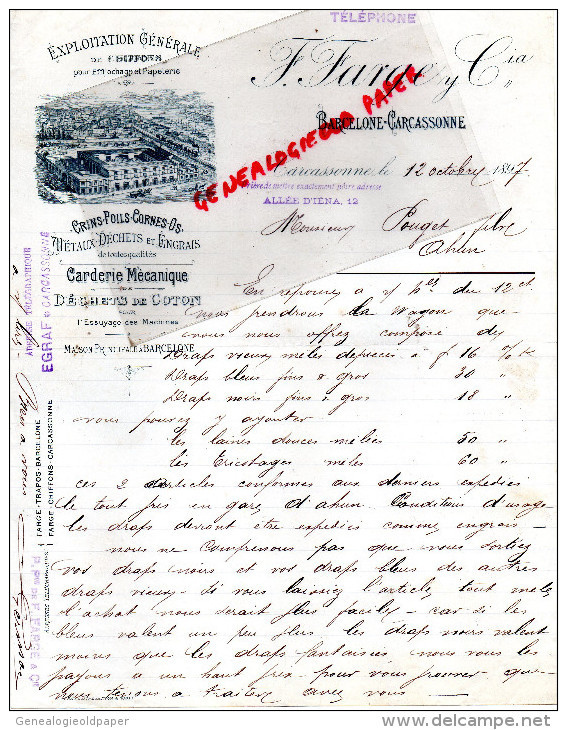 TÉLÉPHONE
EXPLOITATION GÉNÉRALE
DE CHIFFONS
pour Effilochage et Papeterie
F. Farge y Cia
BARCELONE-CARCASSONNE
GENEALOGIEOLD PAPER
Carcassonne, le 12 octobre 1897
Prière de mettre exactement notre adresse
ALLÉE D'IÉNA, 12
Monsieur Pouget fils
Ahun
CRINS-POILS-CORNES-OS,
MÉTAUX-DÉCHETS ET ENGRAIS
de toutes qualités
Carderie Mécanique
DÉCHETS DE COTON
POUR
l'Essuyage des Machines
MAISON PRINCIPALE À BARCELONE
ADRESSE TÉLÉGRAPHIQUE
EGRAF-CARCASSONNE
FARGE-TRAPOS-BARCELONE
FARGE-CHIFFONS-CARCASSONNE
P. Pon DE F. FARGE & Cie
En réponse à v/ du 12 ct
nous prendrons le wagon que
vous nous offrez composé de
Draps vieux mêlés dépecés à f 16 % k
Draps bleus fins & gros 30 "
Draps noirs fins & gros 18 "
vous pouvez y ajouter
les laines douces mêlées 50 "
les tricotages mêlés 60 "
ces 2 articles conformes aux derniers expédiés
le tout pris en gare d'ahun. Conditions d'usage
les draps devront être expédiés comme engrais —
nous ne comprenons pas que vous sortiez
vos draps noirs et vos draps bleus des autres
draps vieux - si vous laissiez l'article tout mêlé
l'achat nous serait plus facile — car si les
bleus valent un peu plus les draps noirs valent
moins que les draps fantaisies nous vous les
payons à un haut prix pour vous prouver que
nous tenons à traiter avec vous —
Genealogieoldpaper
delcampe.net